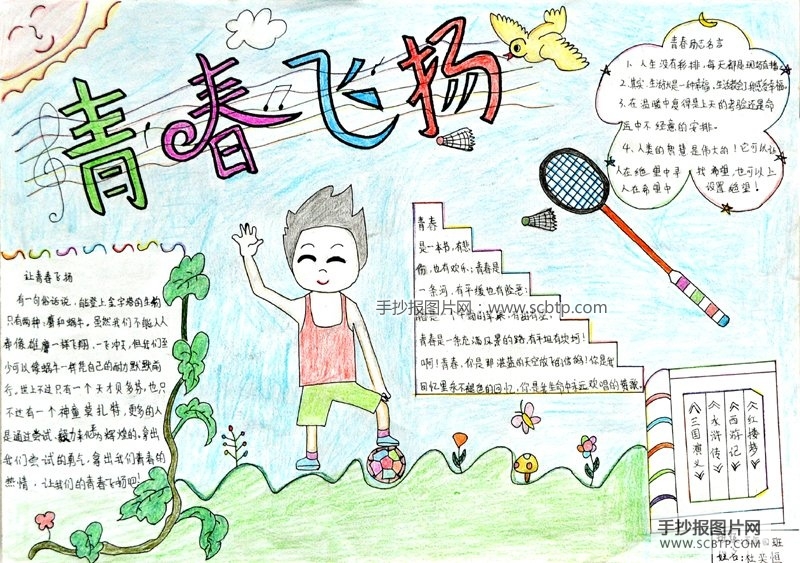 青春飞扬
青春励志名言
1、人生没有彩排,每天都是现场直播。
2、其实,生活就是一种幸福,生活教会了我感受幸福。
3、在温暖中意得是上天的考验还是命
运中不经意的安排。
4、人类的智慧是伟大的!它可以让
人在绝望中寻找希望,也可以上
人在希望中设置绝望!
让青春飞扬
有一句俗话说,能登上金字塔的生物
只有两种,鹰和蜗牛。虽然我们不能人人
都像雄鹰一样飞翔,一飞冲天,但我们至
少可以像蜗牛一样凭自己的耐力默默前
行。世上不过只有一个天才贝多芬,也只
不过有一个神童莫扎特,更多的人
是通过尝试,毅力来化为辉煌的。拿出
我们尝试的勇气,拿出我们青春的
热情,让我们的青春飞扬吧!
青春
是一本书,有悲
伤,也有欢乐;青春是
一条河,有平缓也有险恶;
青春是一条充满风景的路,有平坦有坎坷!
啊!青春,你是那湛蓝的天空放飞的信鸽!你是我
回忆里永不褪色的回忆,你是我生命中永远欢唱的
手抄报图片网:www.scbtp.com
《红楼梦》
《西游记》
《水浒传》
《三国演义》
手抄报图片网
WWW.SCBTP.COM
班
姓名: